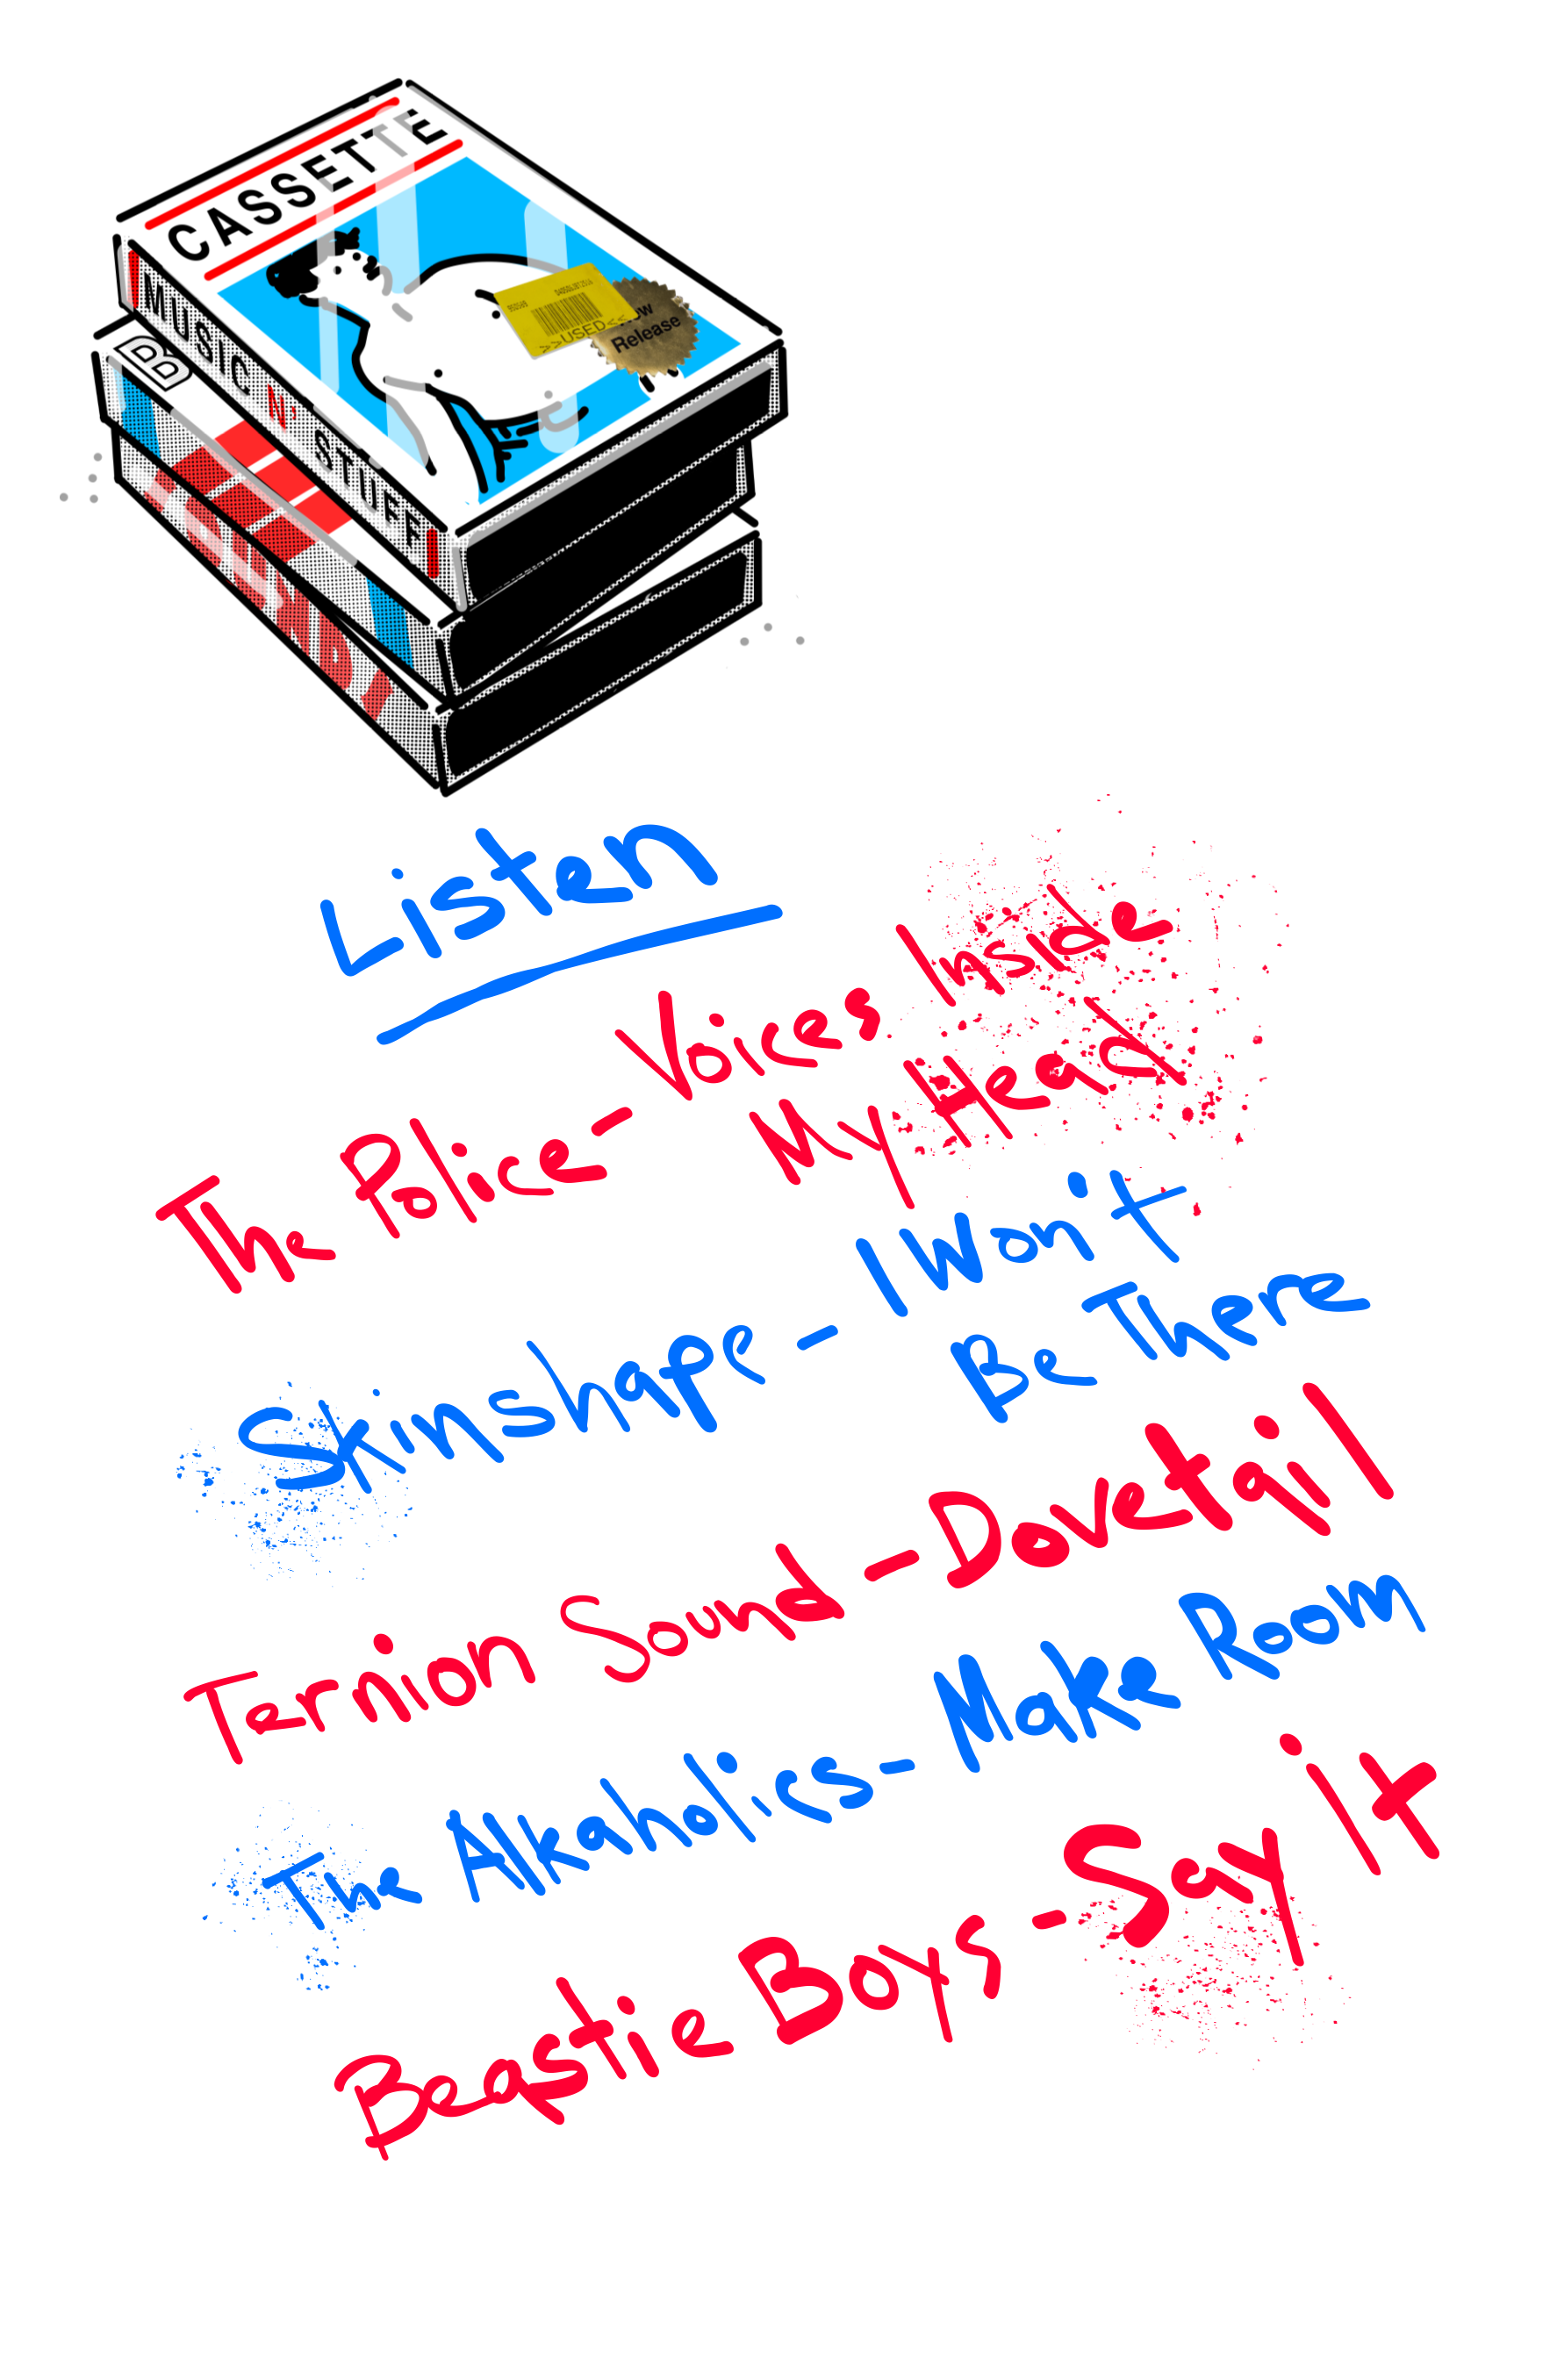 CASSETTE
>>USED<<
Release
MUSIC N' STUFF
B
Listen
The Police - Voices Inside
My Head
Skinshape - I Won't
Be There
Ternion Sound - Dovetail
The Alkaholics - Make Room
Beastie Boys - Say It